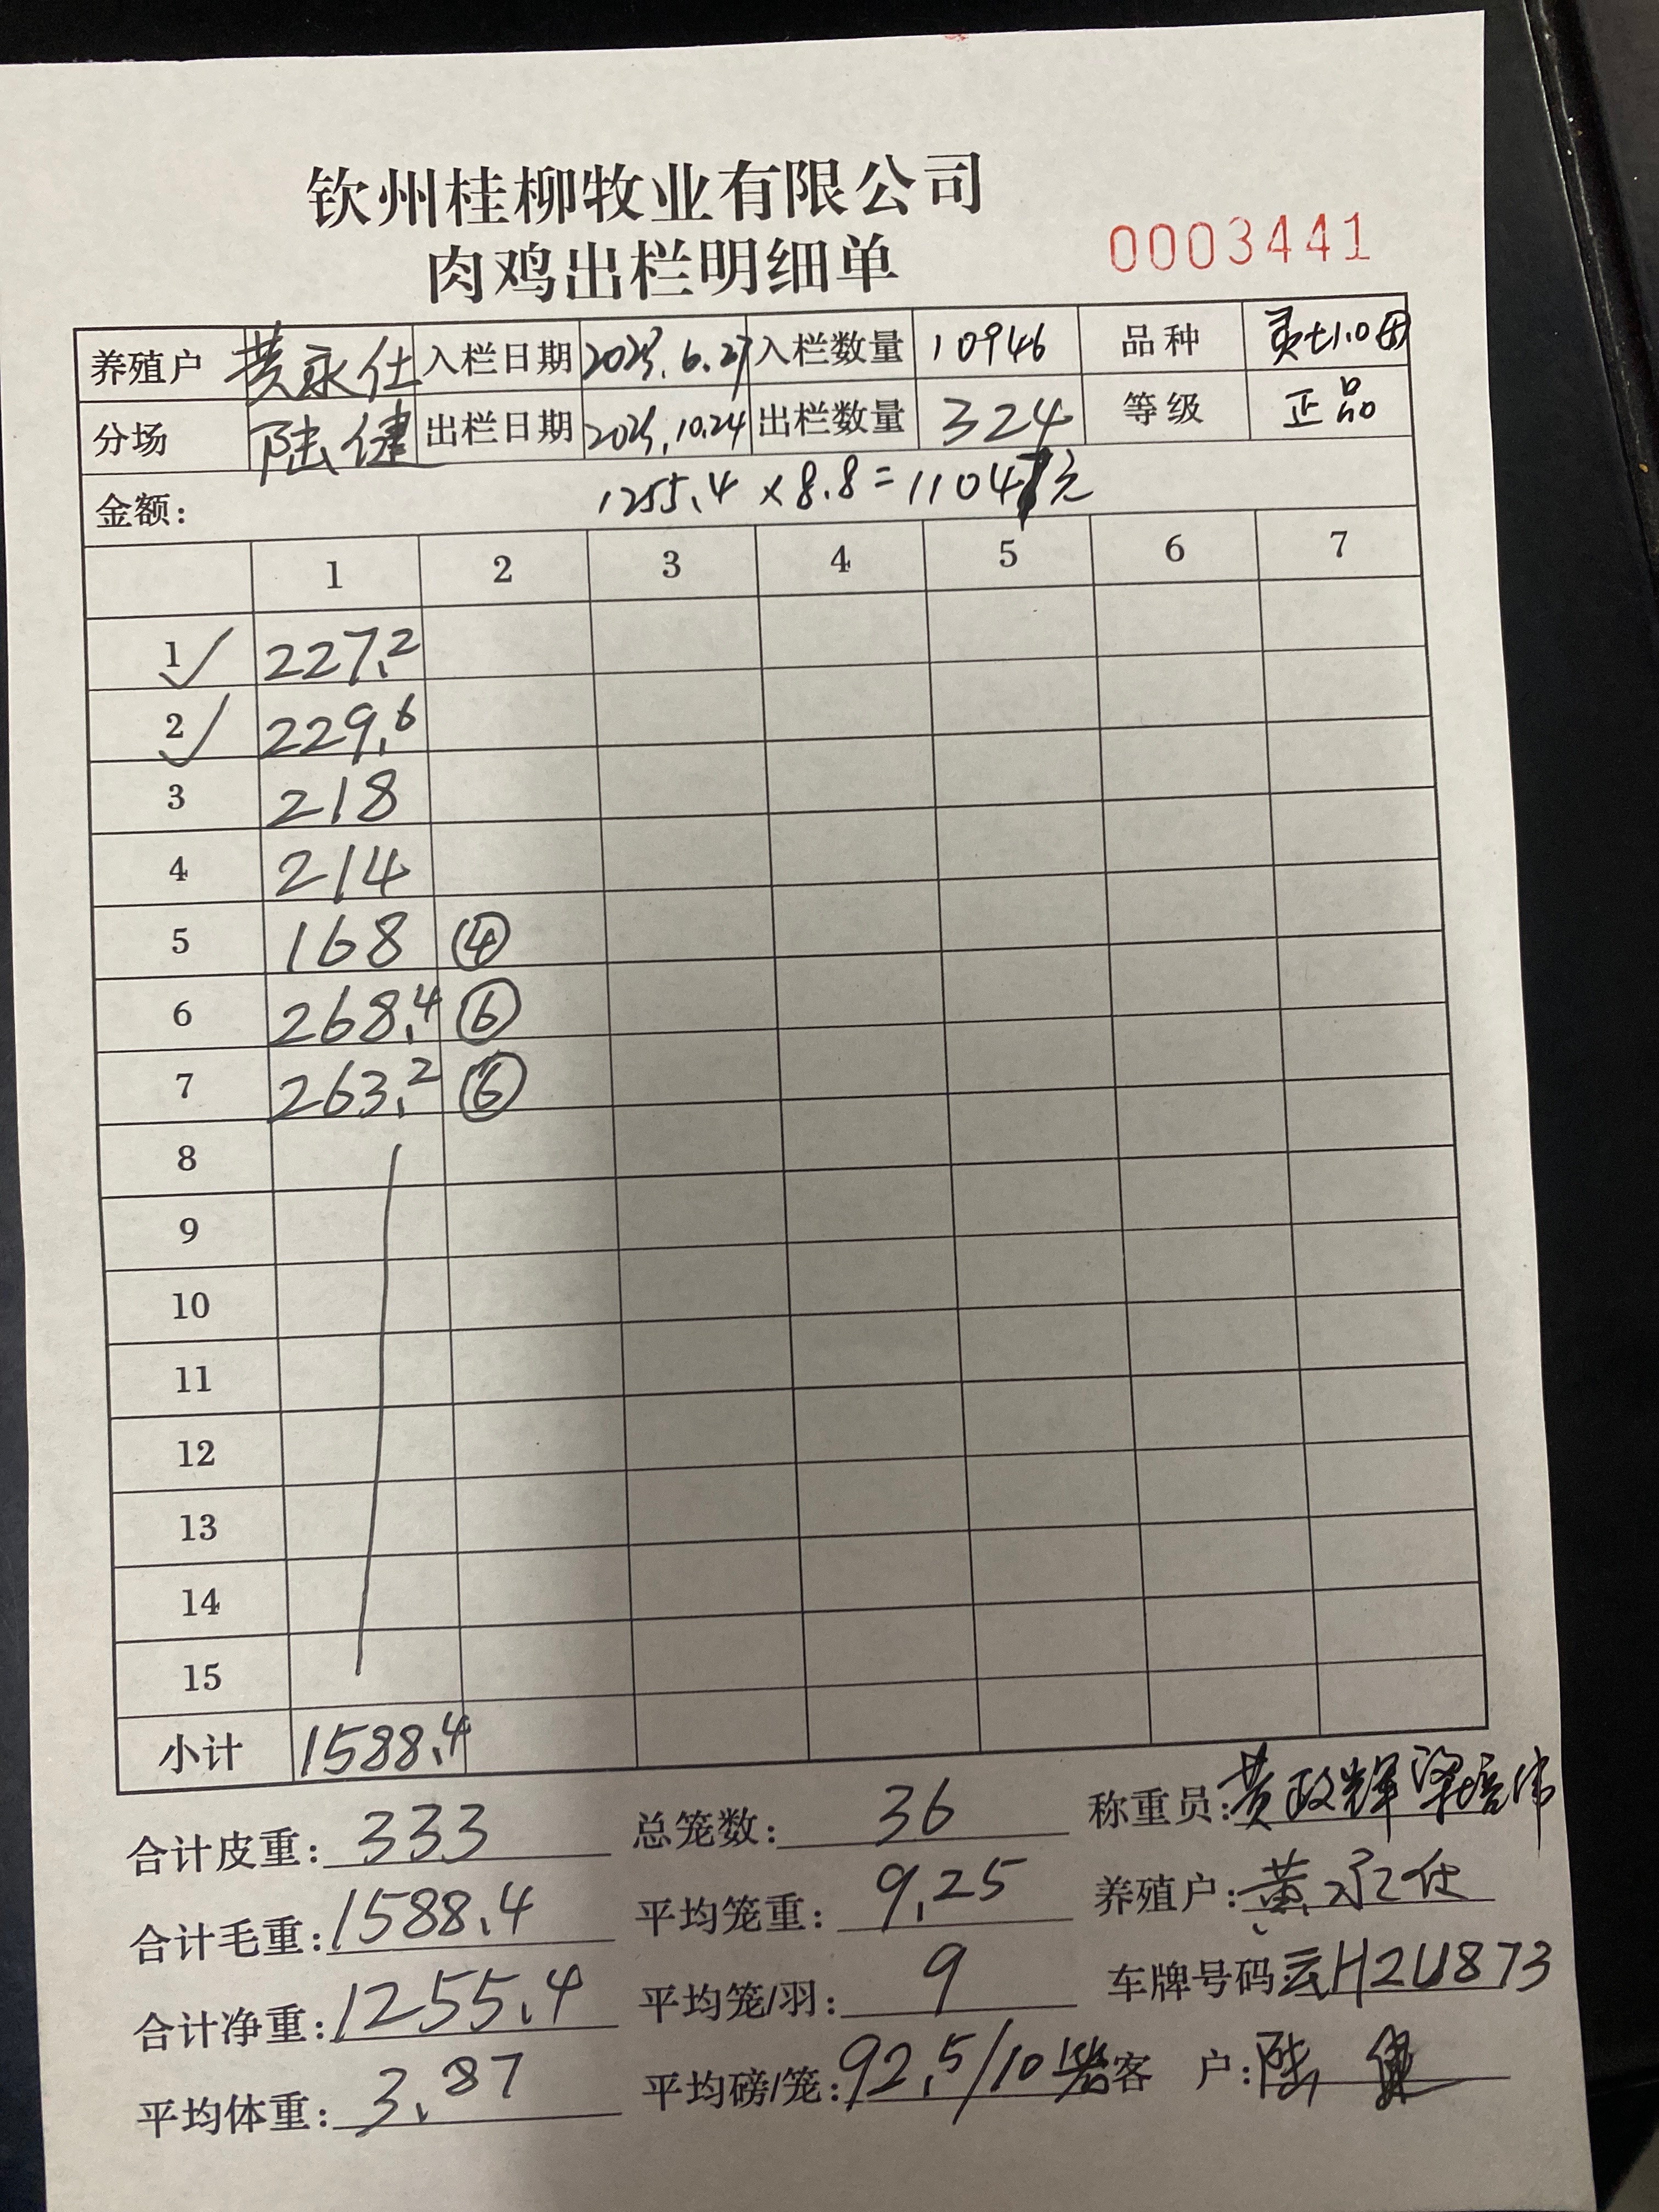 钦州桂柳牧业有限公司
肉鸡出栏明细单 0003441
养殖户 黄永仕 入栏日期 2025.6.27 入栏数量 10946 品种
分场 陆健 出栏日期 2025.10.24 出栏数量 324 等级 正品
金额: 1255.4 × 8.8 = 11047元
1 2 3 4 5 6 7
1 ✓ 227.2
2 ✓ 229.6
3 218
4 214
5 168 ④
6 268.4 ⑥
7 263.2 ⑥
8
9
10
11
12
13
14
15
小计 1588.4
合计皮重: 333 总笼数: 36 称重员: 黄政辉 梁培伟
合计毛重: 1588.4 平均笼重: 9.25 养殖户: 黄永仕
合计净重: 1255.4 平均笼/羽: 9 车牌号码: 云H2U873
平均体重: 3.87 平均磅/笼: 92.5/10 客户: 陆健